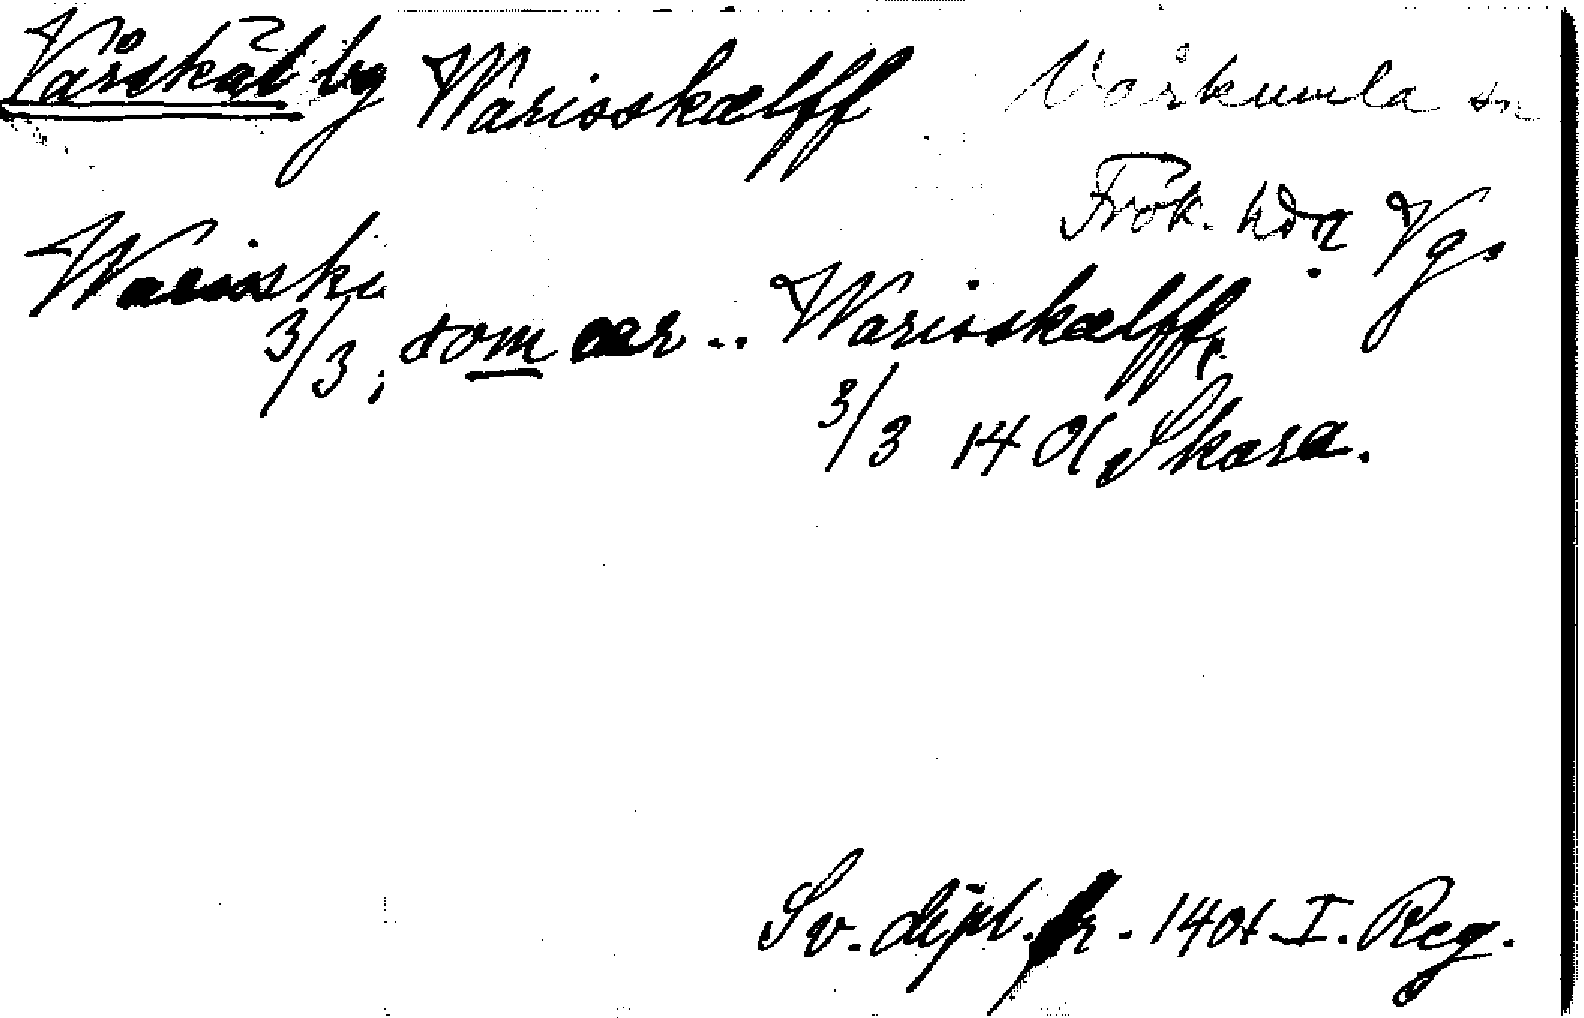 Vårskäl by Warisskælff Vårkumla sn
Frök. hd Vg.
Warisski
3/3, som ær .. Warisskælff,
3/3 1401 Skara.
Sv. dipl. fr. 1401. I. Reg.